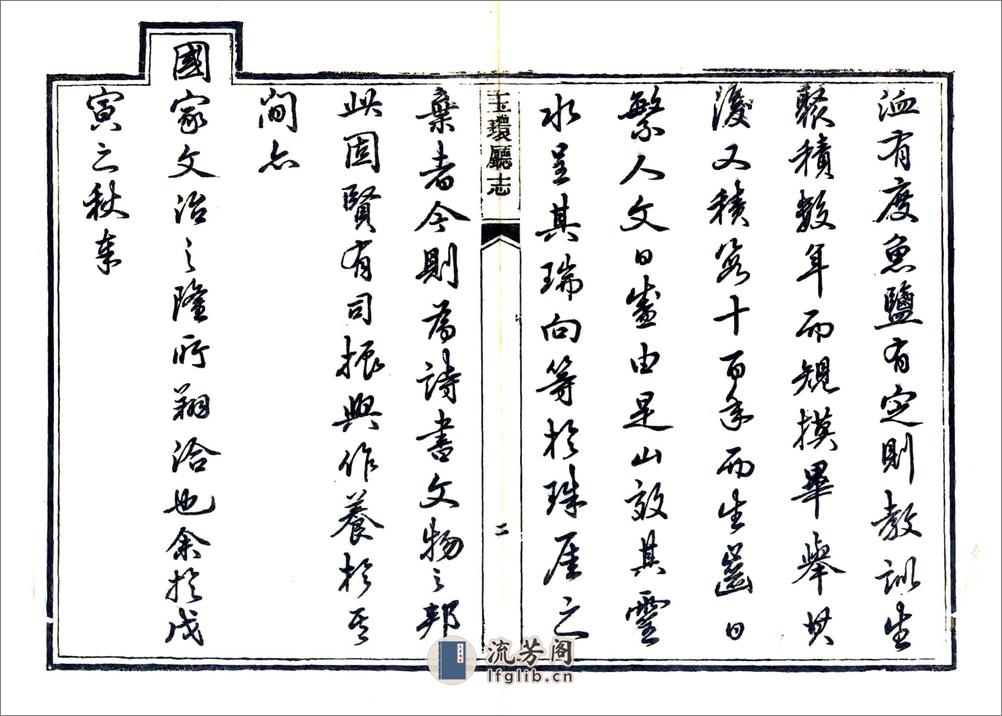 洫有度魚鹽有定則教訓生
聚積數年而規摸畢舉其
後又積若十百年而生齒日
繁人文日盛由是山效其靈
水呈其瑞向等於珠厓之
玉環廳志
二
棄者今則為詩書文物之邦
此固賢有司振興作養於其
間亦
國家文治之隆所翔洽也余於戊
寅之秋奉
流芳阁
lfglib.cn